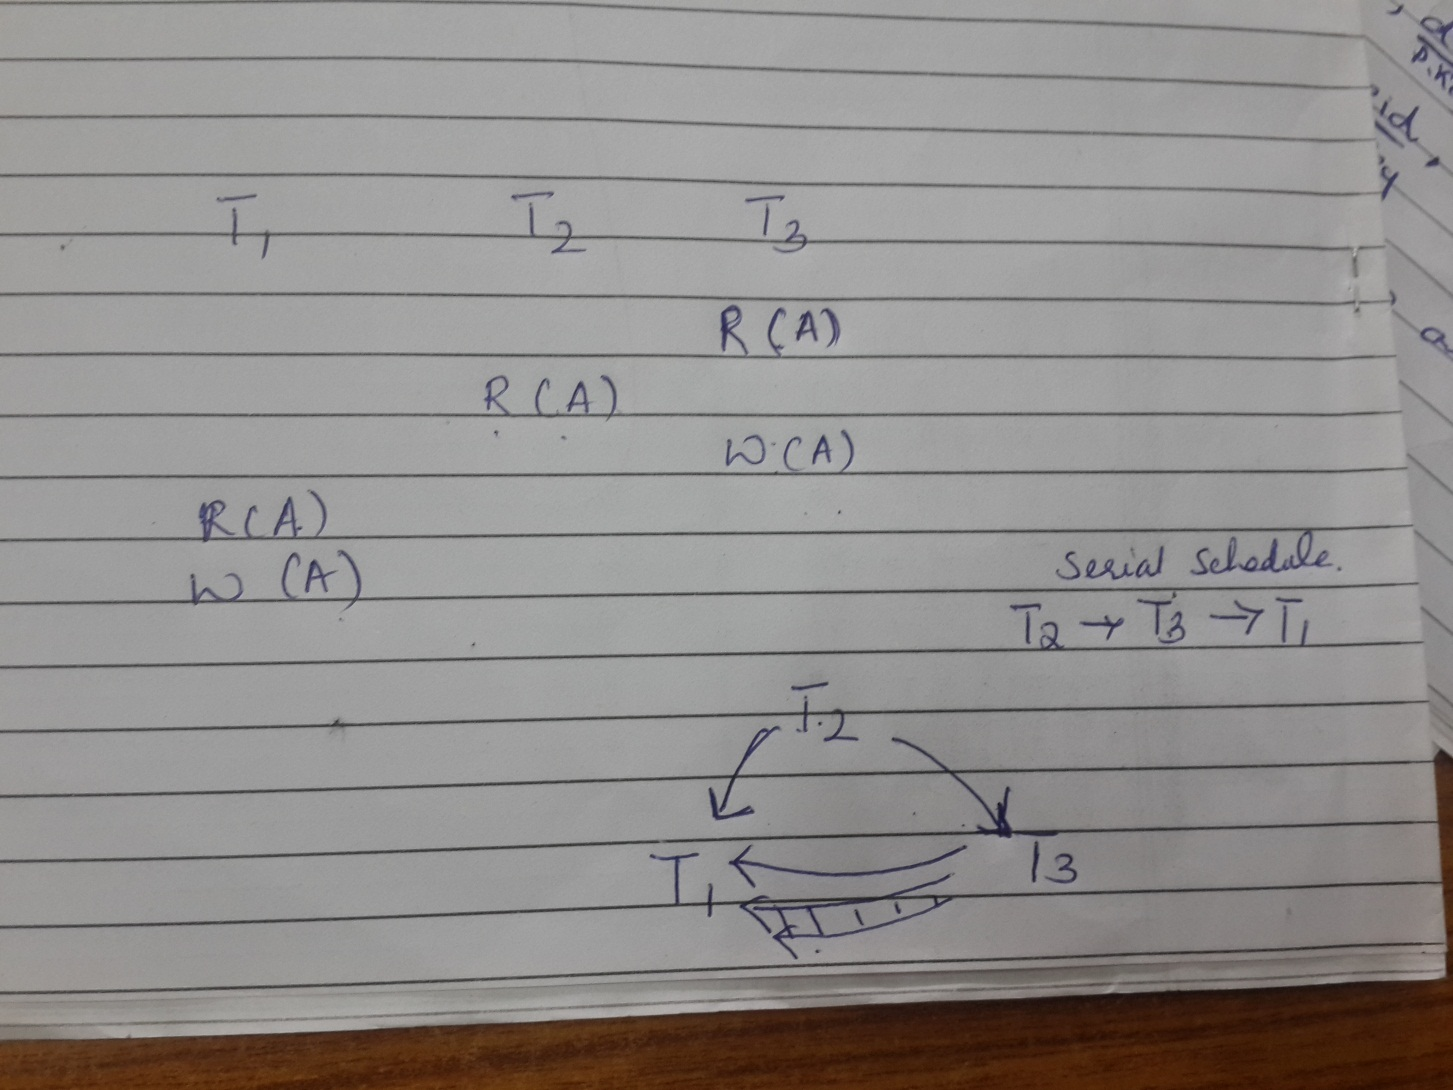 T1 T2 T3
R(A)
R(A)
W(A)
R(A)
W (A)
Serial Schedule.
T2 → T3 → T1
T2
T1 T3
P.K
id,